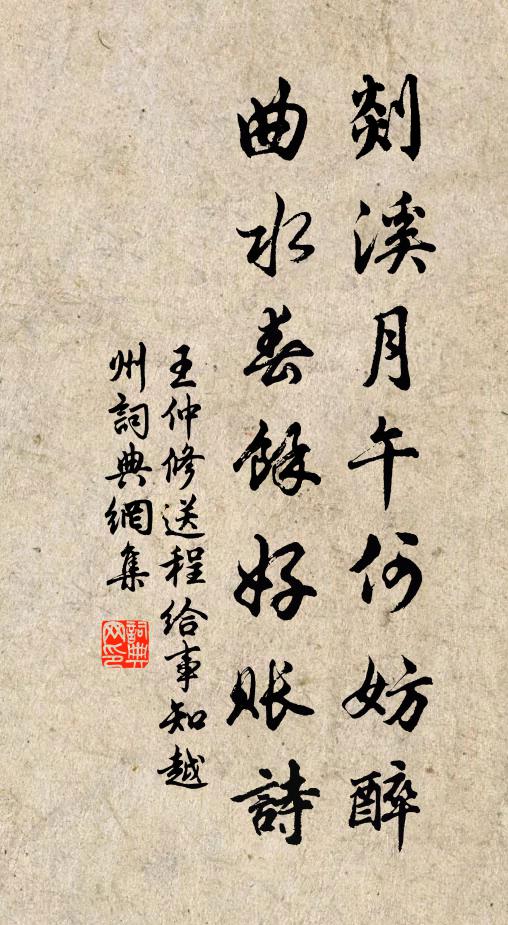 剡溪月午何妨醉
曲水春餘好賬詩
王仲修送程给事知越
州詞典網集
詞典
网印